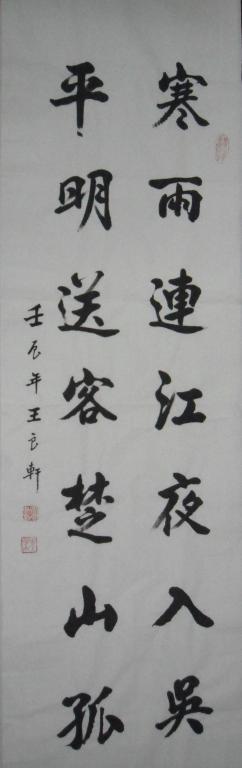 寒雨連江夜入吳
平明送客楚山孤
壬辰年王良軒